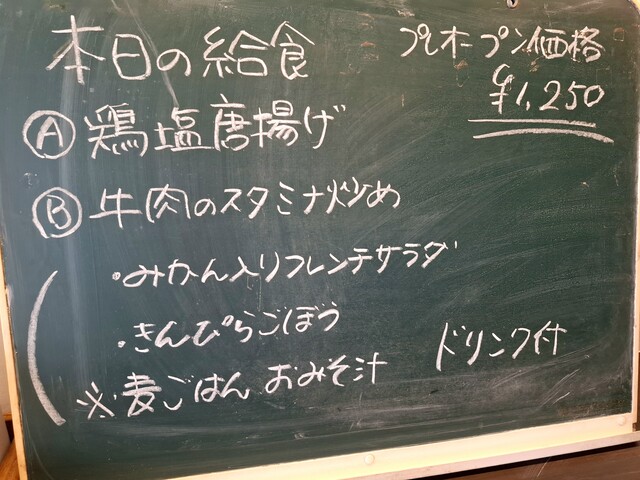 本日の給食
プレオープン価格
¥1,250
Ⓐ 鶏塩唐揚げ
Ⓑ 牛肉のスタミナ炒め
・みかん入りフレンチサラダ
・きんぴらごぼう
※麦ごはん おみそ汁
ドリンク付